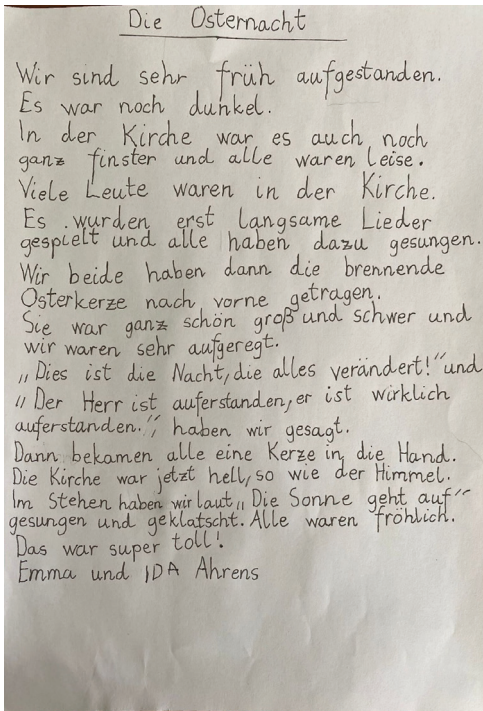 Die Osternacht
Wir sind sehr früh aufgestanden.
Es war noch dunkel.
In der Kirche war es auch noch
ganz finster und alle waren leise.
Viele Leute waren in der Kirche.
Es wurden erst langsame Lieder
gespielt und alle haben dazu gesungen.
Wir beide haben dann die brennende
Osterkerze nach vorne getragen.
Sie war ganz schön groß und schwer und
wir waren sehr aufgeregt.
„Dies ist die Nacht, die alles verändert!“ und
„Der Herr ist auferstanden, er ist wirklich
auferstanden.“, haben wir gesagt.
Dann bekamen alle eine Kerze in die Hand.
Die Kirche war jetzt hell, so wie der Himmel.
Im Stehen haben wir laut „Die Sonne geht auf“
gesungen und geklatscht. Alle waren fröhlich.
Das war super toll!
Emma und IDA Ahrens